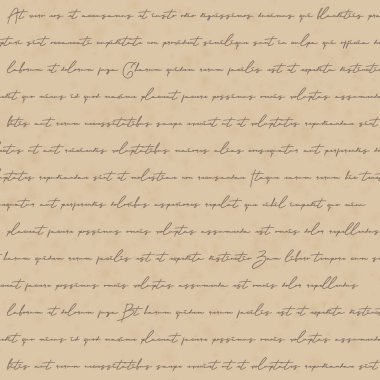 At vero eos et accusamus et iusto odio dignissimos ducimus qui blanditiis pra
pturi sint occaecati cupiditate non provident similique sunt in culpa qui officia de
laborum et dolorum fuga Et harum quidem rerum facilis est et expedita distinctio
met quo minus id quod maxime placeat facere possimus omnis voluptas assumenda
bitis aut rerum necessitatibus saepe eveniet ut et voluptates repudiandae sint
tus ut aut reiciendis voluptatibus maiores alias consequatur aut perferendis do
luptates repudiandae sint et molestiae non recusandae Itaque earum rerum hic ten
sequatur aut perferendis doloribus asperiores repellat quo nihil impedit quo minu
placeat facere possimus omnis voluptas assumenda est omnis dolor repellendus
harum quidem rerum facilis est et expedita distinctio Nam libero tempore cum so
facere possimus omnis voluptas assumenda est omnis dolor repellendus
laborum et dolorum fuga Et harum quidem rerum facilis est et expedita distinctio
met quo minus id quod maxime placeat facere possimus omnis voluptas assumenda
bitis aut rerum necessitatibus saepe eveniet ut et voluptates repudiandae sint